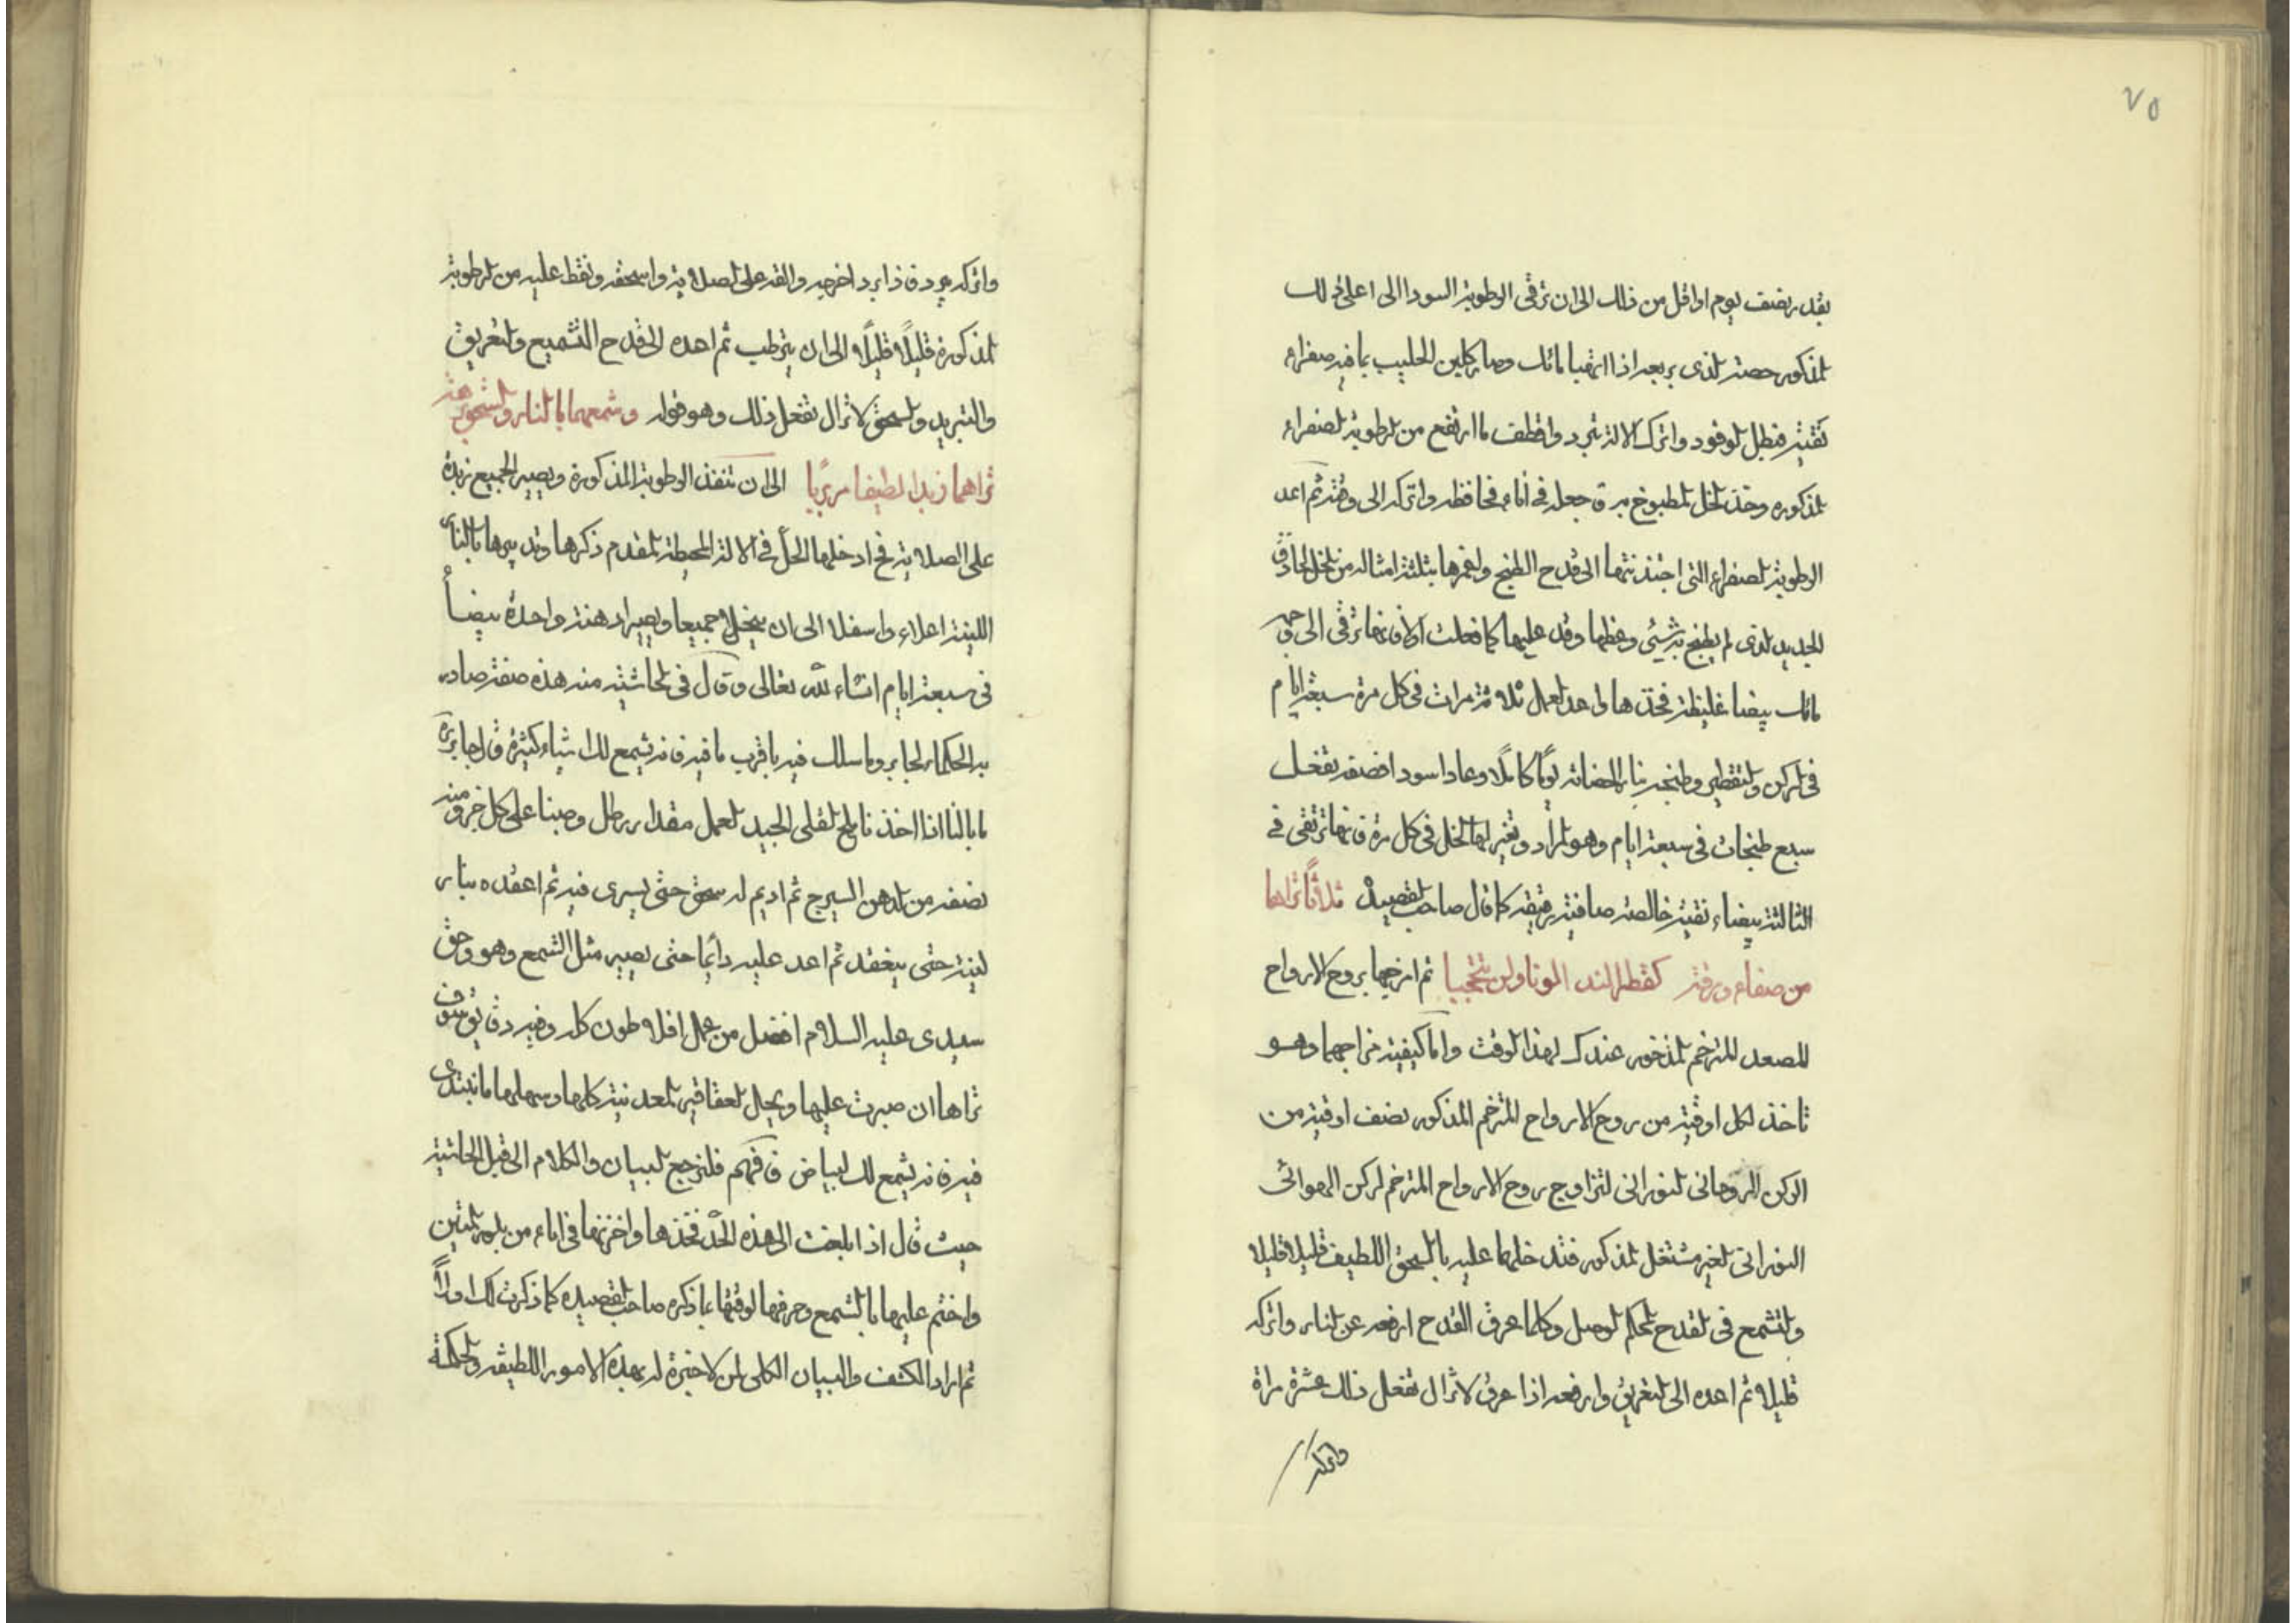 ٧٥
بقدر نصف يوم اواقل من ذلك الى ان ترقى الرطوبة السودا الى اعلى ذلك
المذكور حصة الذى يربعه اذا ارتقيا مائك وصار كلبن الحليب بمافيه صفراء
نقية فبطل الوقود واترك الالة تبرد واقطف ما ارتفع من الرطوبة الصفراء
المذكوره وخذ الخل المطبوخ به جعله فى اناء فحافظه واتركه الى وقته ثم اعد
الرطوبة الصفراء التى اجتذبتها الى قدح الطبخ واغمرها بثلثة امثاله من الخل الحاذق
الجديد الذى لم يطبخ به شيئ وغطها وقد عليها كما فعلت اولا فانها ترقى الى وجه
مائك بيضا غليظة فخذها واعد العمل ثلاثة مرات فى كل مرة سبعة ايام
فى الركن والتقطير وطبخه بنار الحضانة يومًا كاملًا وعادا سودا فصفه بفعل
سبع طبخات فى سبعة ايام وهو المراد وتغير لها الخل فى كل مرة فانها ترتقى فى
الثالثة بيضاء نقية خالصة صافية رقيقه كما قال صاحب القصيدة ثلاثًا تراها
من صفاء ورقة كقطر الندا لونا ولن تتحجبا ثم امزجها بروح الارواح
المصعد المترخم المذخور عندك لهذا الوقت واما كيفية مزاجهما وهو
تاخذ لكل اوقية من روح الارواح المترخم المذكور نصف اوقية من
الركن الروحانى النورانى لتزاوج روح الارواح المترخم لركن الهوائى
النورانى الغير مشتعل المذكور فتدخلهما عليه بالسحق اللطيف قليلا قليلا
والتشمع فى القدح المحكم الوصل وكلما عرق القدح ارفعه عن النار واتركه
قليلا ثم اعده الى التعريق وارفعه اذا عرق لا تزال تفعل ذلك عشرة مراة
واتركه
واتركه يبرد فاذا برد اخرجه والقه على الصلاية واسحقه ونقط عليه من الرطوبة
المذكورة قليلًا قليلًا الى ان يترطب ثم اعده الى قدح التشميع والتعريق
والتبريد والسحق لا تزال تفعل ذلك وهو قوله وشمعهما بالنار والسحق برهة
تراهما زبدا لطيفا مربّبا الى ان تنفذ الرطوبة المذكورة ويصير الجميع زبدة
على الصلاية فح ادخلها الحل فى الالة المحيطة المقدم ذكرها وتدبيرها بالنار
اللينة اعلاء واسفلا الى ان ينحلا جميعا ويصيرا دهنة واحدة بيضأ
فى سبعة ايام انشاء الله تعالى وقال فى الحاشية منه هذه صفة صادره
به الحكماء لجابر وما سلك فيه باقرب مافيه فانه يشمع لك اشياء كثيرة قال جابر
مابالنا اننا اخذنا ملح القلى الجيد العمل مقدار رطل وصبنا على كل جزو منه
نصفه من الدهن السيرج ثم اديم له سحق حتى يسرى فيه ثم اعقده بنار
لينة حتى ينعقد ثم اعد عليه دائما حتى يصير مثل الشمع وهو وحق
سيدى عليه السلام افضل من عمل افلاطون كله وفيه دقايق سوف
تراها ان صبرت عليها ويحل العقاقير المعدنية كلها وسهلها ما نبتدى
فيه فانه يشمع لك البياض فافهم فلنرجع البيان والكلام الى قبل الحاشية
حيث قال اذا بلغت الى هذه الحد فخذها واخزنها فى اناء من بلور متين
واختم عليها بالشمع وحرفها لوقتها بماذكره صاحب القصيده كما ذكرت لك اولاً
ثم اراد الكشف والبيان الكلى لمن لاخبرة له بهذه الامور اللطيفه والحكمة